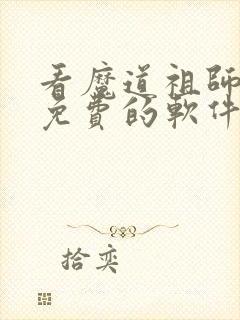 看魔道祖師
免費的軟件
拾奕